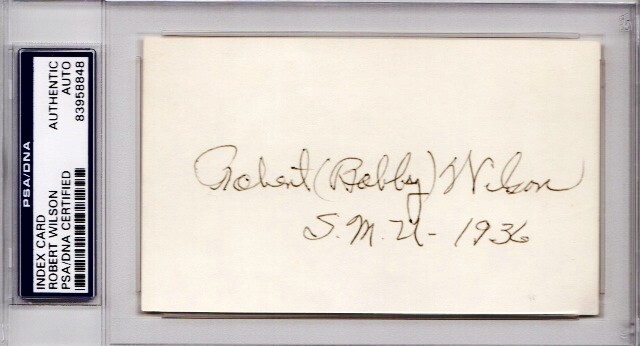 PSA/DNA
INDEX CARD
ROBERT WILSON
PSA/DNA CERTIFIED
AUTHENTIC
AUTO
83958848
Robert (Bobby) Wilson
S.M.U - 1936